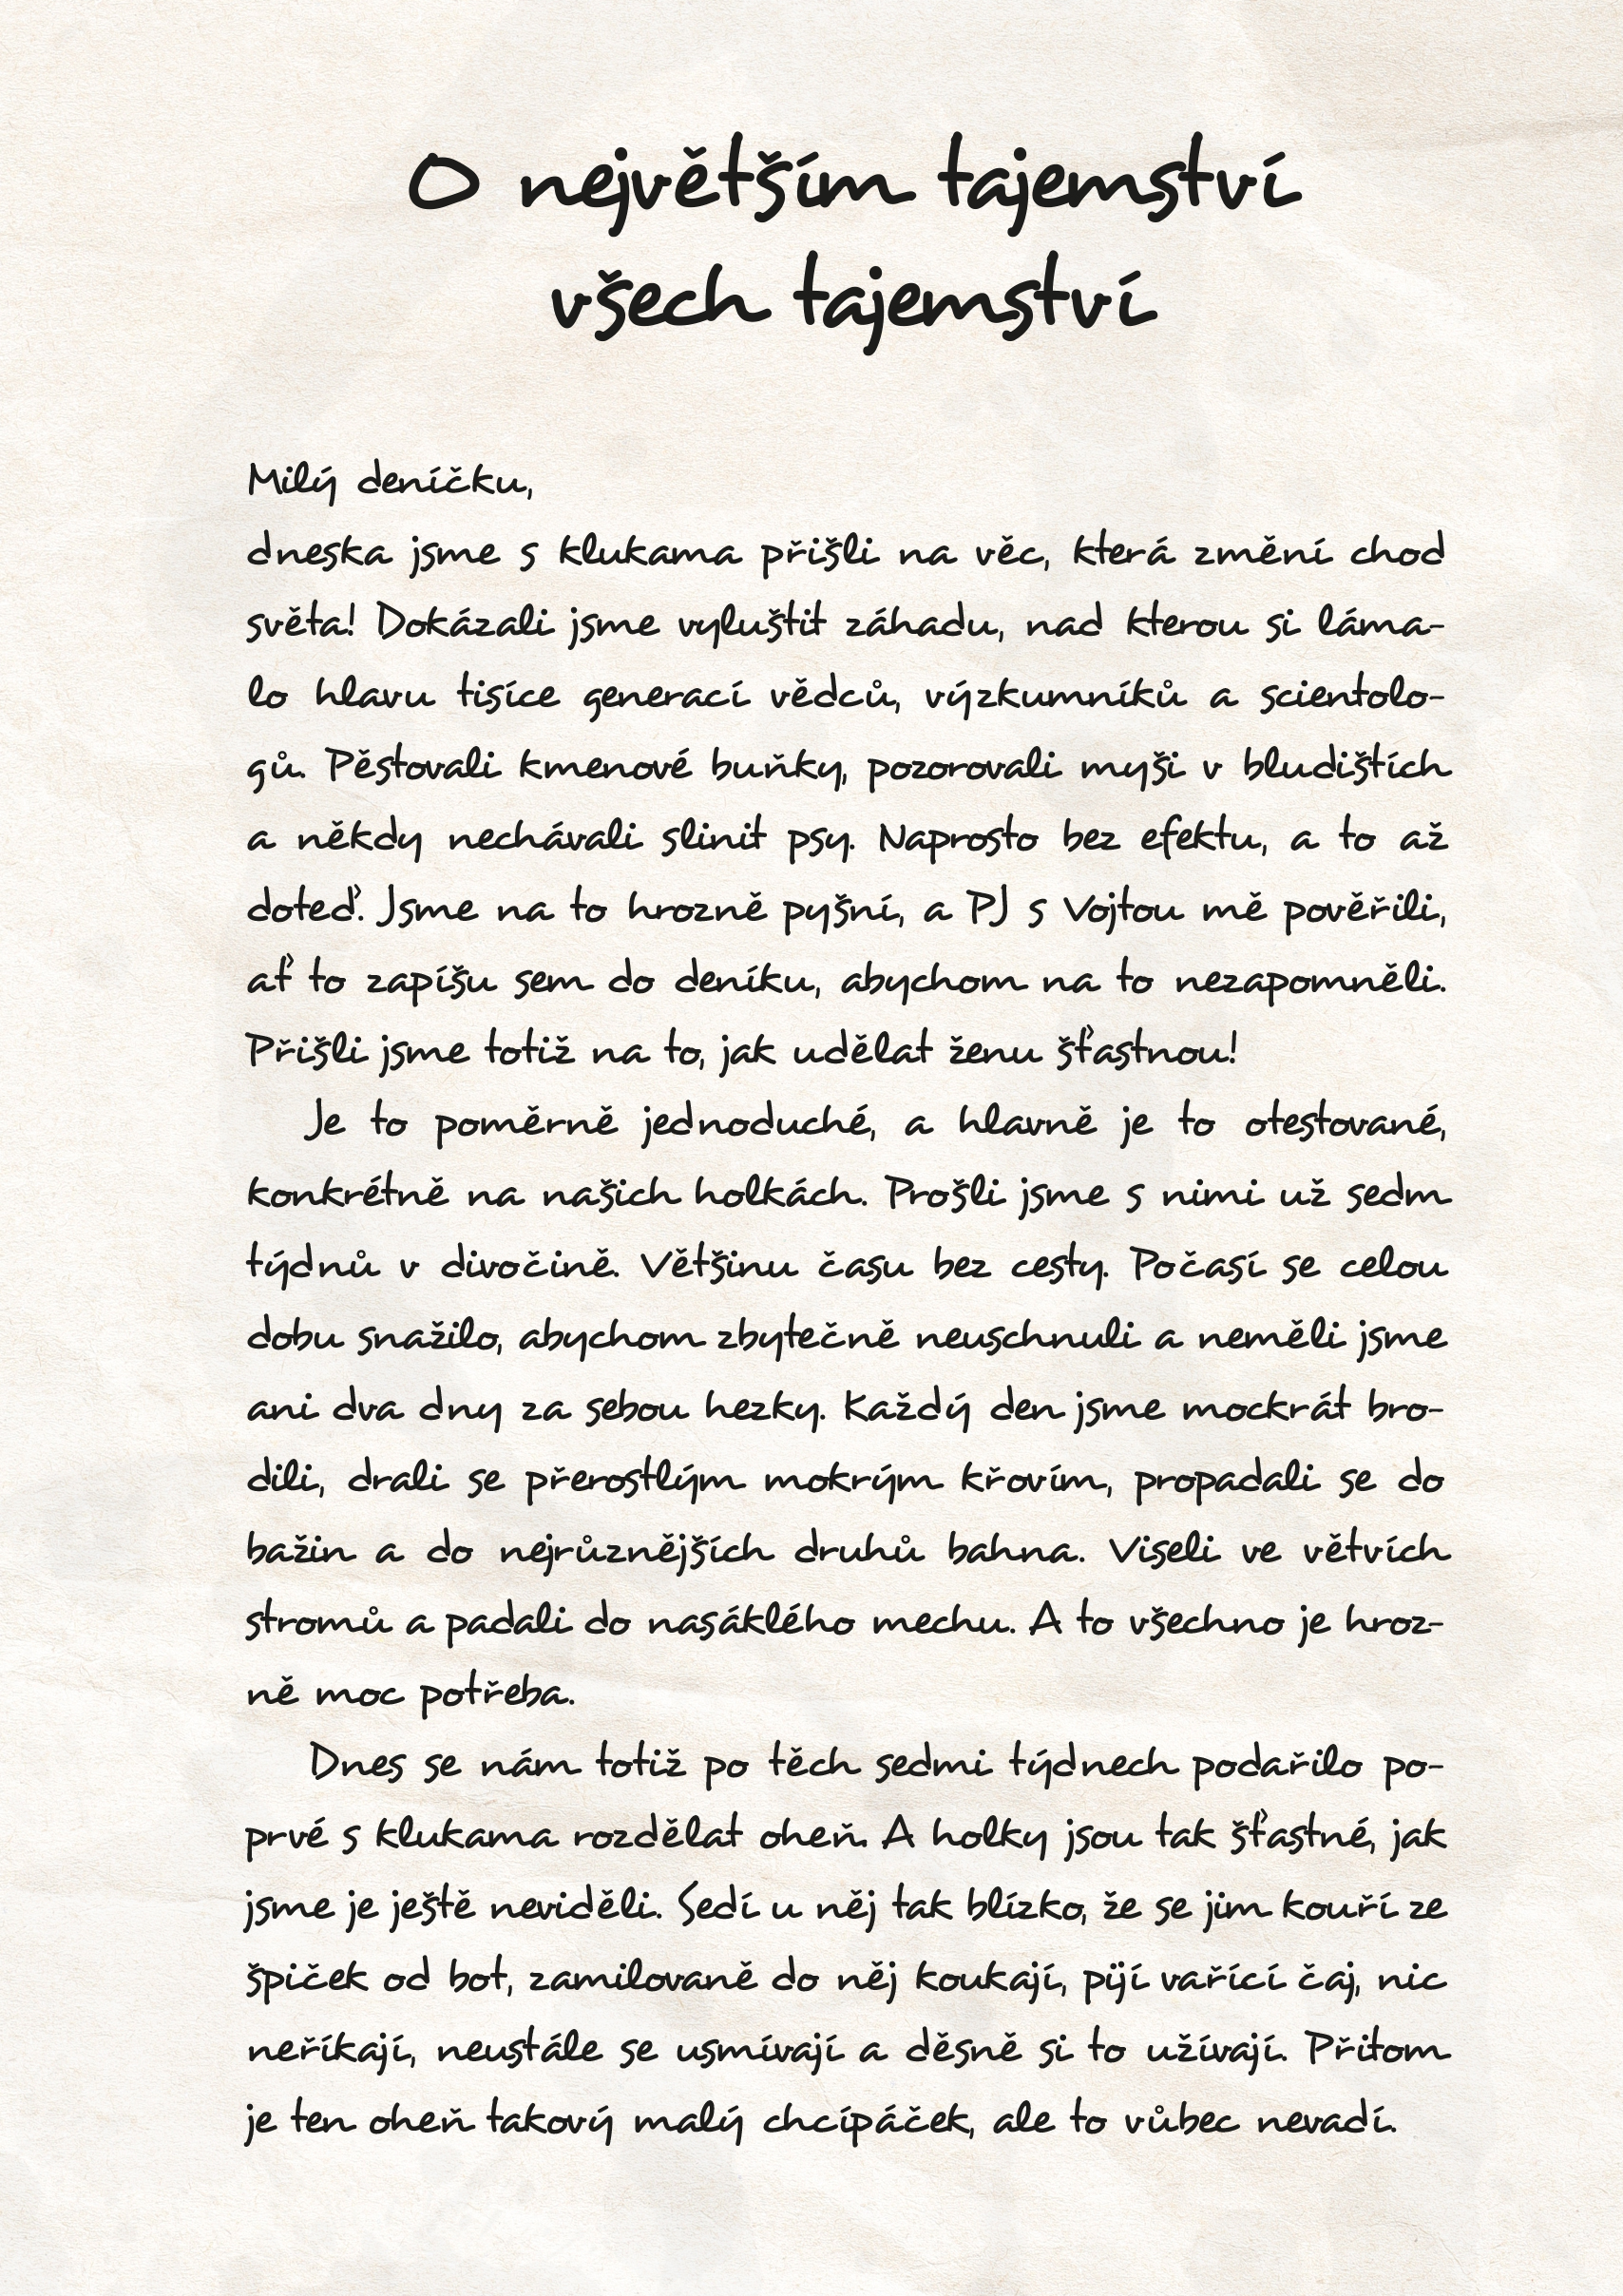 O největším tajemství
všech tajemství
Milý deníčku,
dneska jsme s klukama přišli na věc, která změní chod
světa! Dokázali jsme vyluštit záhadu, nad kterou si láma-
lo hlavu tisíce generací vědců, výzkumníků a scientolo-
gů. Pěstovali kmenové buňky, pozorovali myši v bludištích
a někdy nechávali slinit psy. Naprosto bez efektu, a to až
doteď. Jsme na to hrozně pyšní, a PJ s Vojtou mě pověřili,
ať to zapíšu sem do deníku, abychom na to nezapomněli.
Přišli jsme totiž na to, jak udělat ženu šťastnou!
Je to poměrně jednoduché, a hlavně je to otestované,
konkrétně na našich holkách. Prošli jsme s nimi už sedm
týdnů v divočině. Většinu času bez cesty. Počasí se celou
dobu snažilo, abychom zbytečně neuschnuli a neměli jsme
ani dva dny za sebou hezky. Každý den jsme mockrát bro-
dili, drali se přerostlým mokrým křovím, propadali se do
bažin a do nejrůznějších druhů bahna. Viseli ve větvích
stromů a padali do nasáklého mechu. A to všechno je hroz-
ně moc potřeba.
Dnes se nám totiž po těch sedmi týdnech podařilo po-
prvé s klukama rozdělat oheň. A holky jsou tak šťastné, jak
jsme je ještě neviděli. Sedí u něj tak blízko, že se jim kouří ze
špiček od bot, zamilovaně do něj koukají, pijí vařící čaj, nic
neříkají, neustále se usmívají a děsně si to užívají. Přitom
je ten oheň takový malý chcípáček, ale to vůbec nevadí.